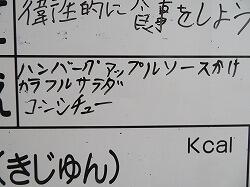 衛生的に食事をしよう
ハンバーグアップルソースかけ
カラフルサラダ
コーンシチュー
Kcal
(きじゅん)